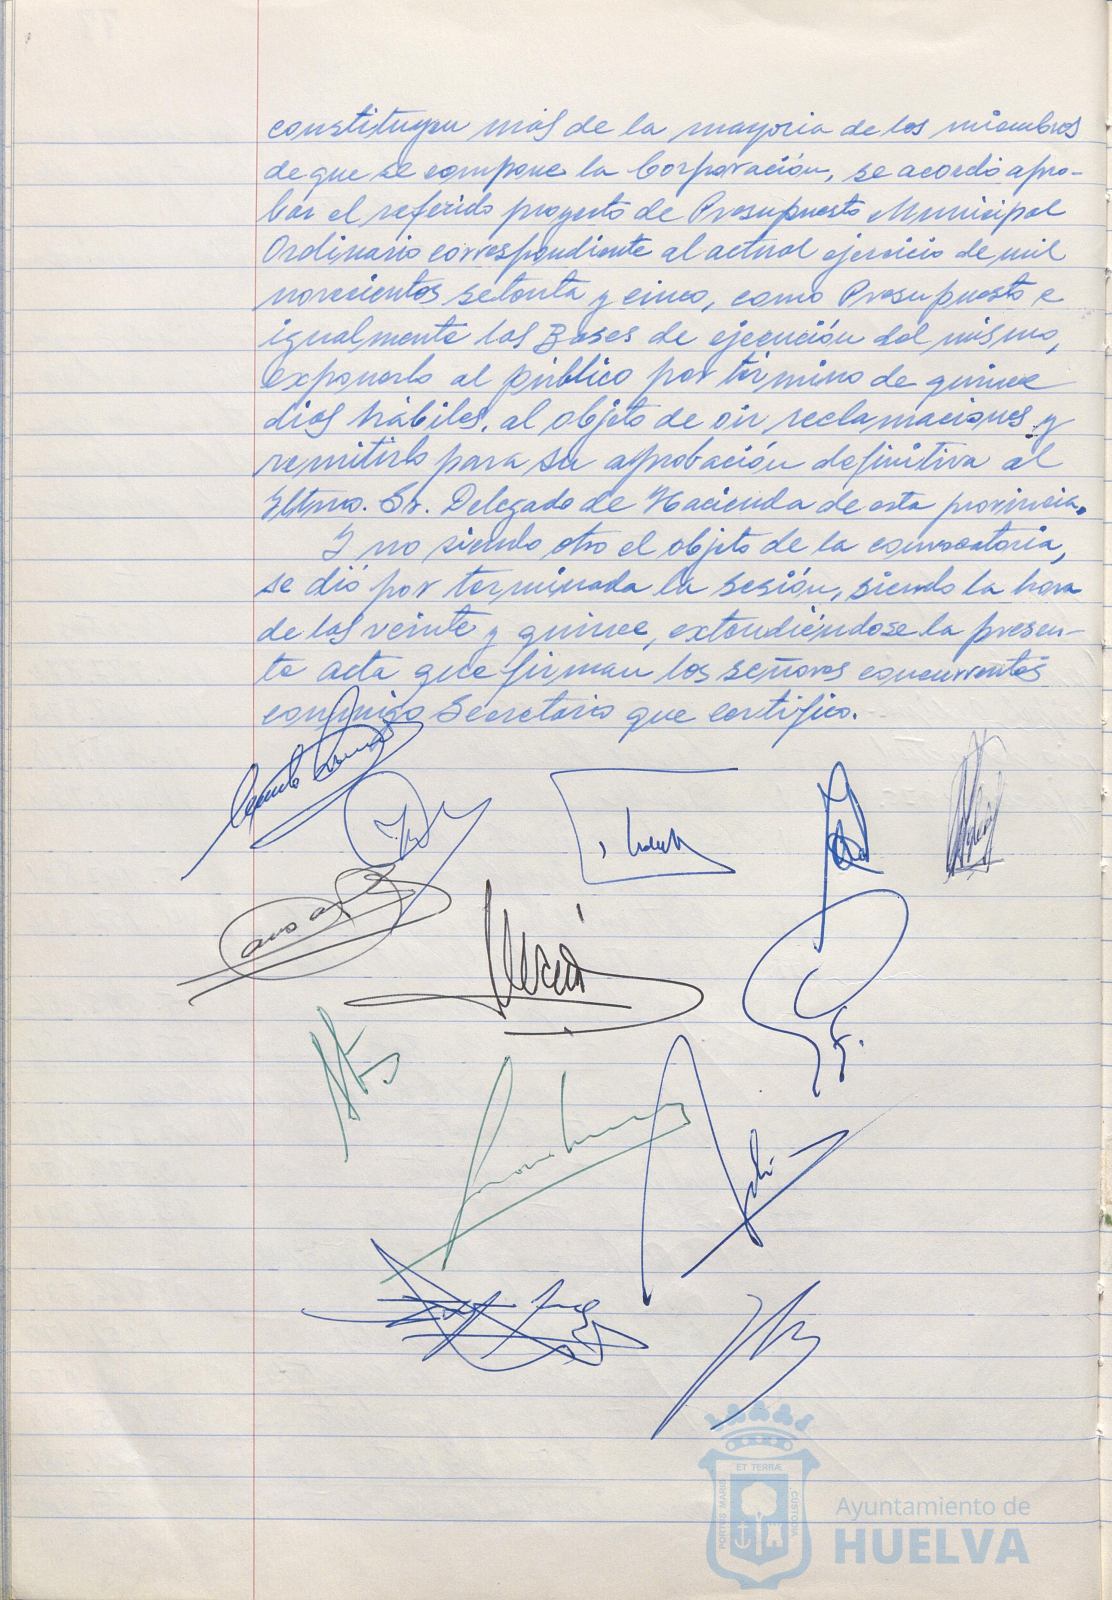 constituyen más de la mayoria de los miembros
de que se compone la Corporación, se acordó apro-
bar el referido proyecto de Presupuesto Municipal
Ordinario correspondiente al actual ejercicio de mil
novecientos setenta y cinco, como Presupuesto e
igualmente las Bases de ejecución del mismo,
exponerlo al público por término de quince
dias hábiles, al objeto de oir reclamaciones y
remitirlo para su aprobación definitiva al
Iltmo. Sr. Delegado de Hacienda de esta provincia.
Y no siendo otro el objeto de la convocatoria,
se dió por terminada la sesión, siendo la hora
de las veinte y quince, extendiéndose la presen-
te acta que firman los señores concurrentes
conmigo Secretario que certifico.
ET TERRÆ
PORTUS MARIS
CUSTODIA
Ayuntamiento de
HUELVA